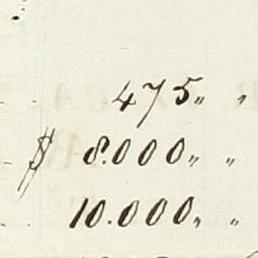 475 „ „
$ 8.000 „ „
10.000 „ „